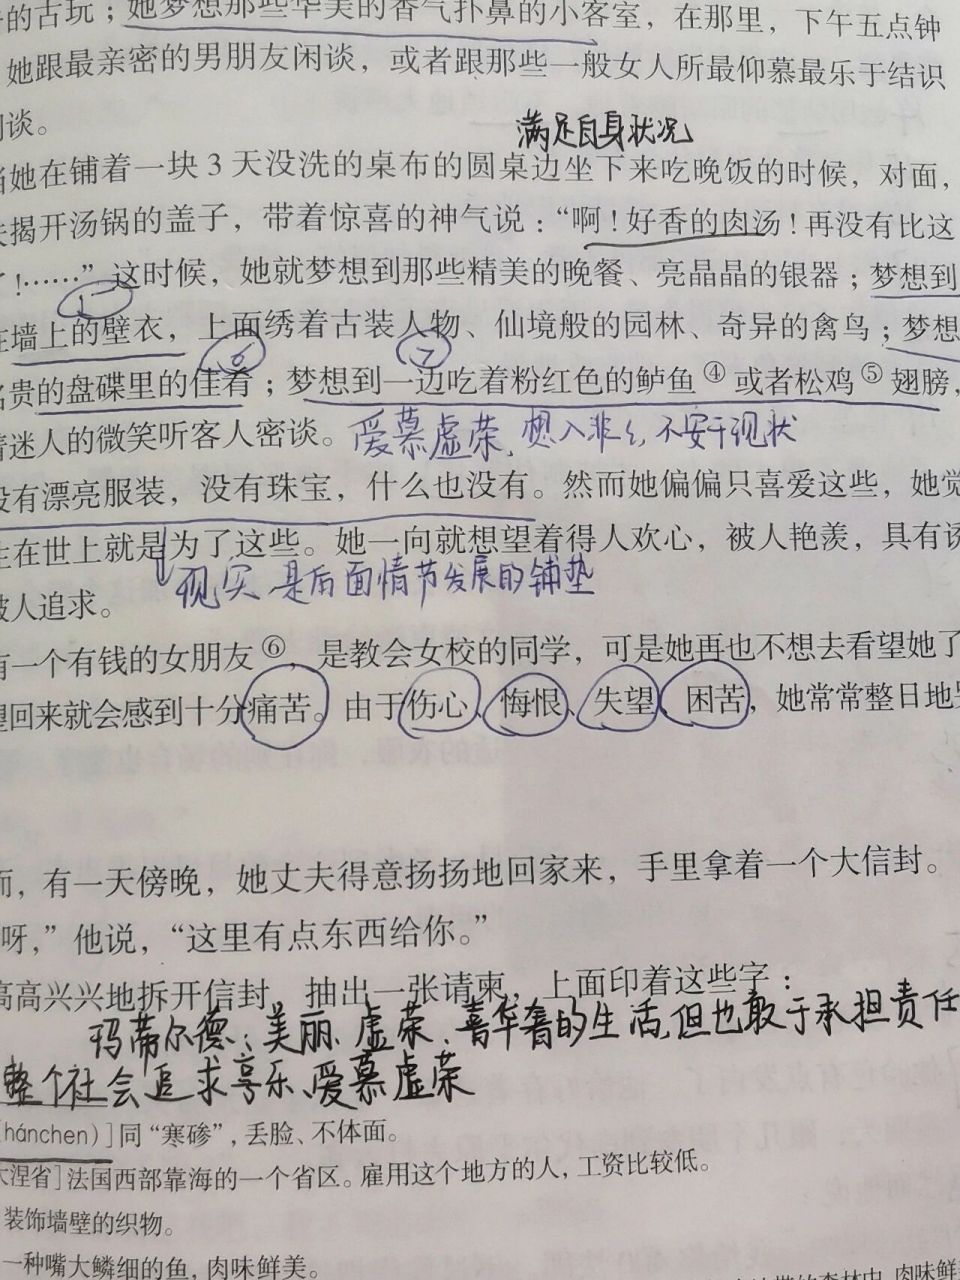 的古玩；她梦想那些华美的香气扑鼻的小客室，在那里，下午五点钟
她跟最亲密的男朋友闲谈，或者跟那些一般女人所最仰慕最乐于结识
谈。
满足自身状况
她在铺着一块3天没洗的桌布的圆桌边坐下来吃晚饭的时候，对面，
揭开汤锅的盖子，带着惊喜的神气说：“啊！好香的肉汤！再没有比这
！……”这时候，她就梦想到那些精美的晚餐、亮晶晶的银器；梦想到
墙上的壁衣，上面绣着古装人物、仙境般的园林、奇异的禽鸟；梦想
⑥ ⑦
名贵的盘碟里的佳肴；梦想到一边吃着粉红色的鲈鱼④或者松鸡⑤翅膀，
迷人的微笑听客人密谈。
爱慕虚荣，想入非非，不安于现状
没有漂亮服装，没有珠宝，什么也没有。然而她偏偏只喜爱这些，她觉
在世上就是为了这些。她一向就想望着得人欢心，被人艳羡，具有
现实 是后面情节发展的铺垫
被人追求。
有一个有钱的女朋友⑥，是教会女校的同学，可是她再也不想去看望她了
回来就会感到十分痛苦。由于伤心、悔恨、失望、困苦，她常常整日地
而，有一天傍晚，她丈夫得意扬扬地回家来，手里拿着一个大信封。
呀，”他说，“这里有点东西给你。”
高高兴兴地拆开信封，抽出一张请柬，上面印着这些字：
玛蒂尔德：美丽、虚荣、喜华奢的生活，但也敢于承担责任
整个社会追求享乐、爱慕虚荣
hánchen)]同“寒碜”，丢脸、不体面。
大涅省]法国西部靠海的一个省区。雇用这个地方的人，工资比较低。
装饰墙壁的织物。
一种嘴大鳞细的鱼，肉味鲜美。